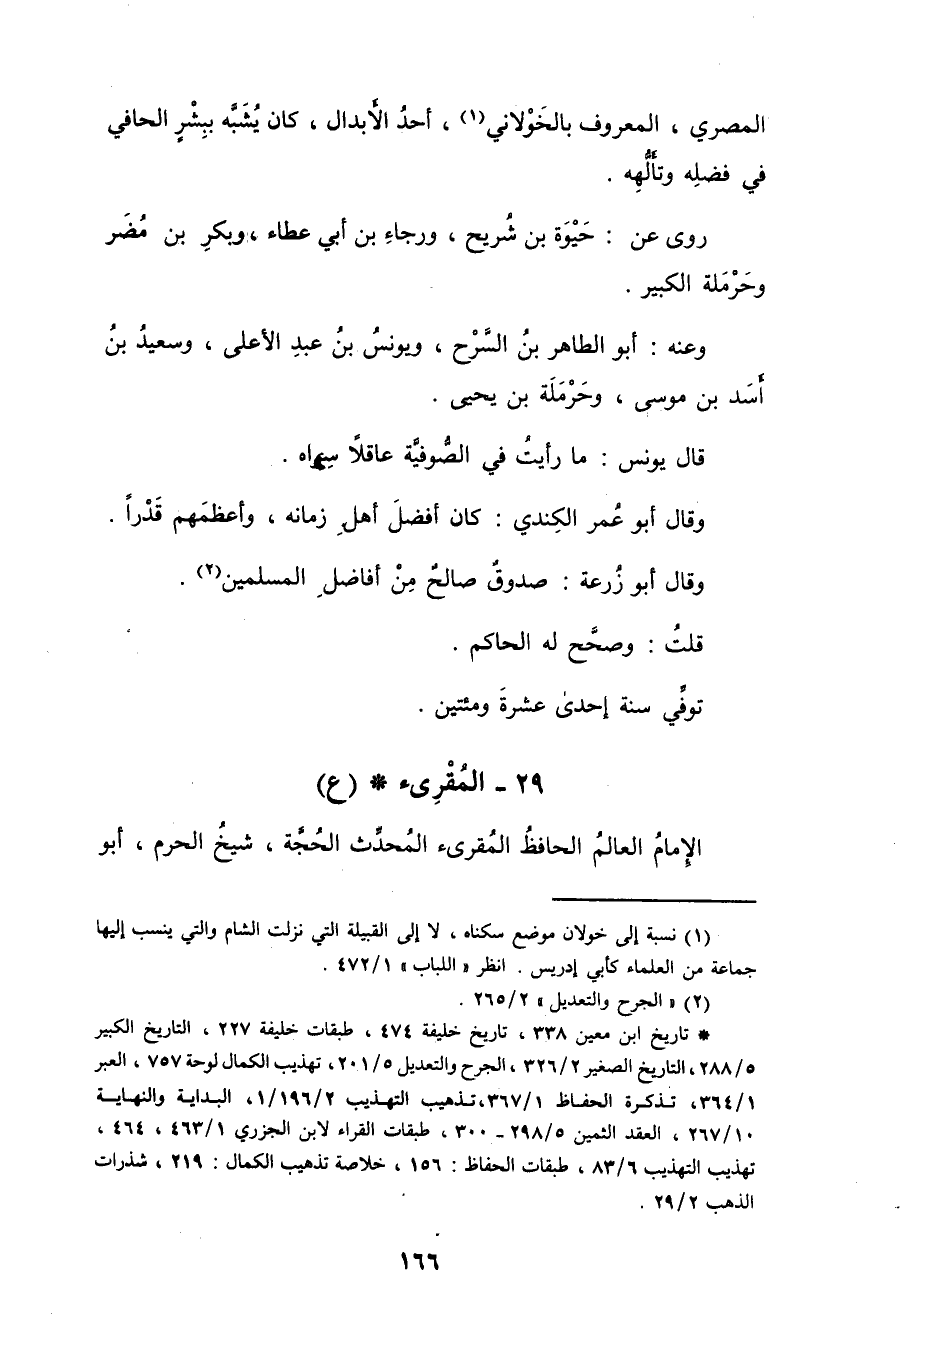 المصري ، المعروف بالخَوْلاني(١) ، أحدُ الأبدال ، كان يُشَبَّه ببِشْرٍ الحافي
في فضلِه وتألُّهِه .
روى عن : حَيْوَة بن شُريح ، ورجاءِ بن أبي عطاء ، وبكرِ بن مُضَر
وحَرْمَلة الكبير .
وعنه : أبو الطاهر بنُ السَّرْح ، ويونسُ بنُ عبدِ الأعلى ، وسعيدُ بنُ
أَسَد بن موسى ، وحَرْمَلَة بن يحيى .
قال يونس : ما رأيتُ في الصُّوفيَّة عاقلاً سِواه .
وقال أبو عُمر الكِندي : كان أفضلَ أهلِ زمانه ، وأعظمَهم قَدْراً .
وقال أبو زُرعة : صدوقٌ صالحٌ مِنْ أفاضلِ المسلمين(٢) .
قلتُ : وصحَّح له الحاكم .
توفِّي سنة إحدىٰ عشرةَ ومئتين .
٢٩ - المُقْرِىء * (ع)
الإِمامُ العالمُ الحافظُ المُقرىء المُحدِّث الحُجَّة ، شيخُ الحرم ، أبو
(١) نسبة إلى خولان موضع سكناه ، لا إلى القبيلة التي نزلت الشام والتي ينسب إليها
جماعة من العلماء كأبي إدريس . انظر « اللباب » ٤٧٢/١ .
(٢) « الجرح والتعديل » ٢٦٥/٢ .
* تاريخ ابن معين ٣٣٨ ، تاريخ خليفة ٤٧٤ ، طبقات خليفة ٢٢٧ ، التاريخ الكبير
٢٨٨/٥ ، التاريخ الصغير ٣٢٦/٢ ، الجرح والتعديل ٢٠١/٥ ، تهذيب الكمال لوحة ٧٥٧ ، العبر
٣٦٤/١ ، تذكرة الحفاظ ٣٦٧/١ ، تذهيب التهذيب ١/١٩٦/٢ ، البداية والنهاية
٢٦٧/١٠ ، العقد الثمين ٢٩٨/٥ - ٣٠٠ ، طبقات القراء لابن الجزري ٤٦٣/١ ، ٤٦٤ ،
تهذيب التهذيب ٨٣/٦ ، طبقات الحفاظ : ١٥٦ ، خلاصة تذهيب الكمال : ٢١٩ ، شذرات
الذهب ٢٩/٢ .
١٦٦